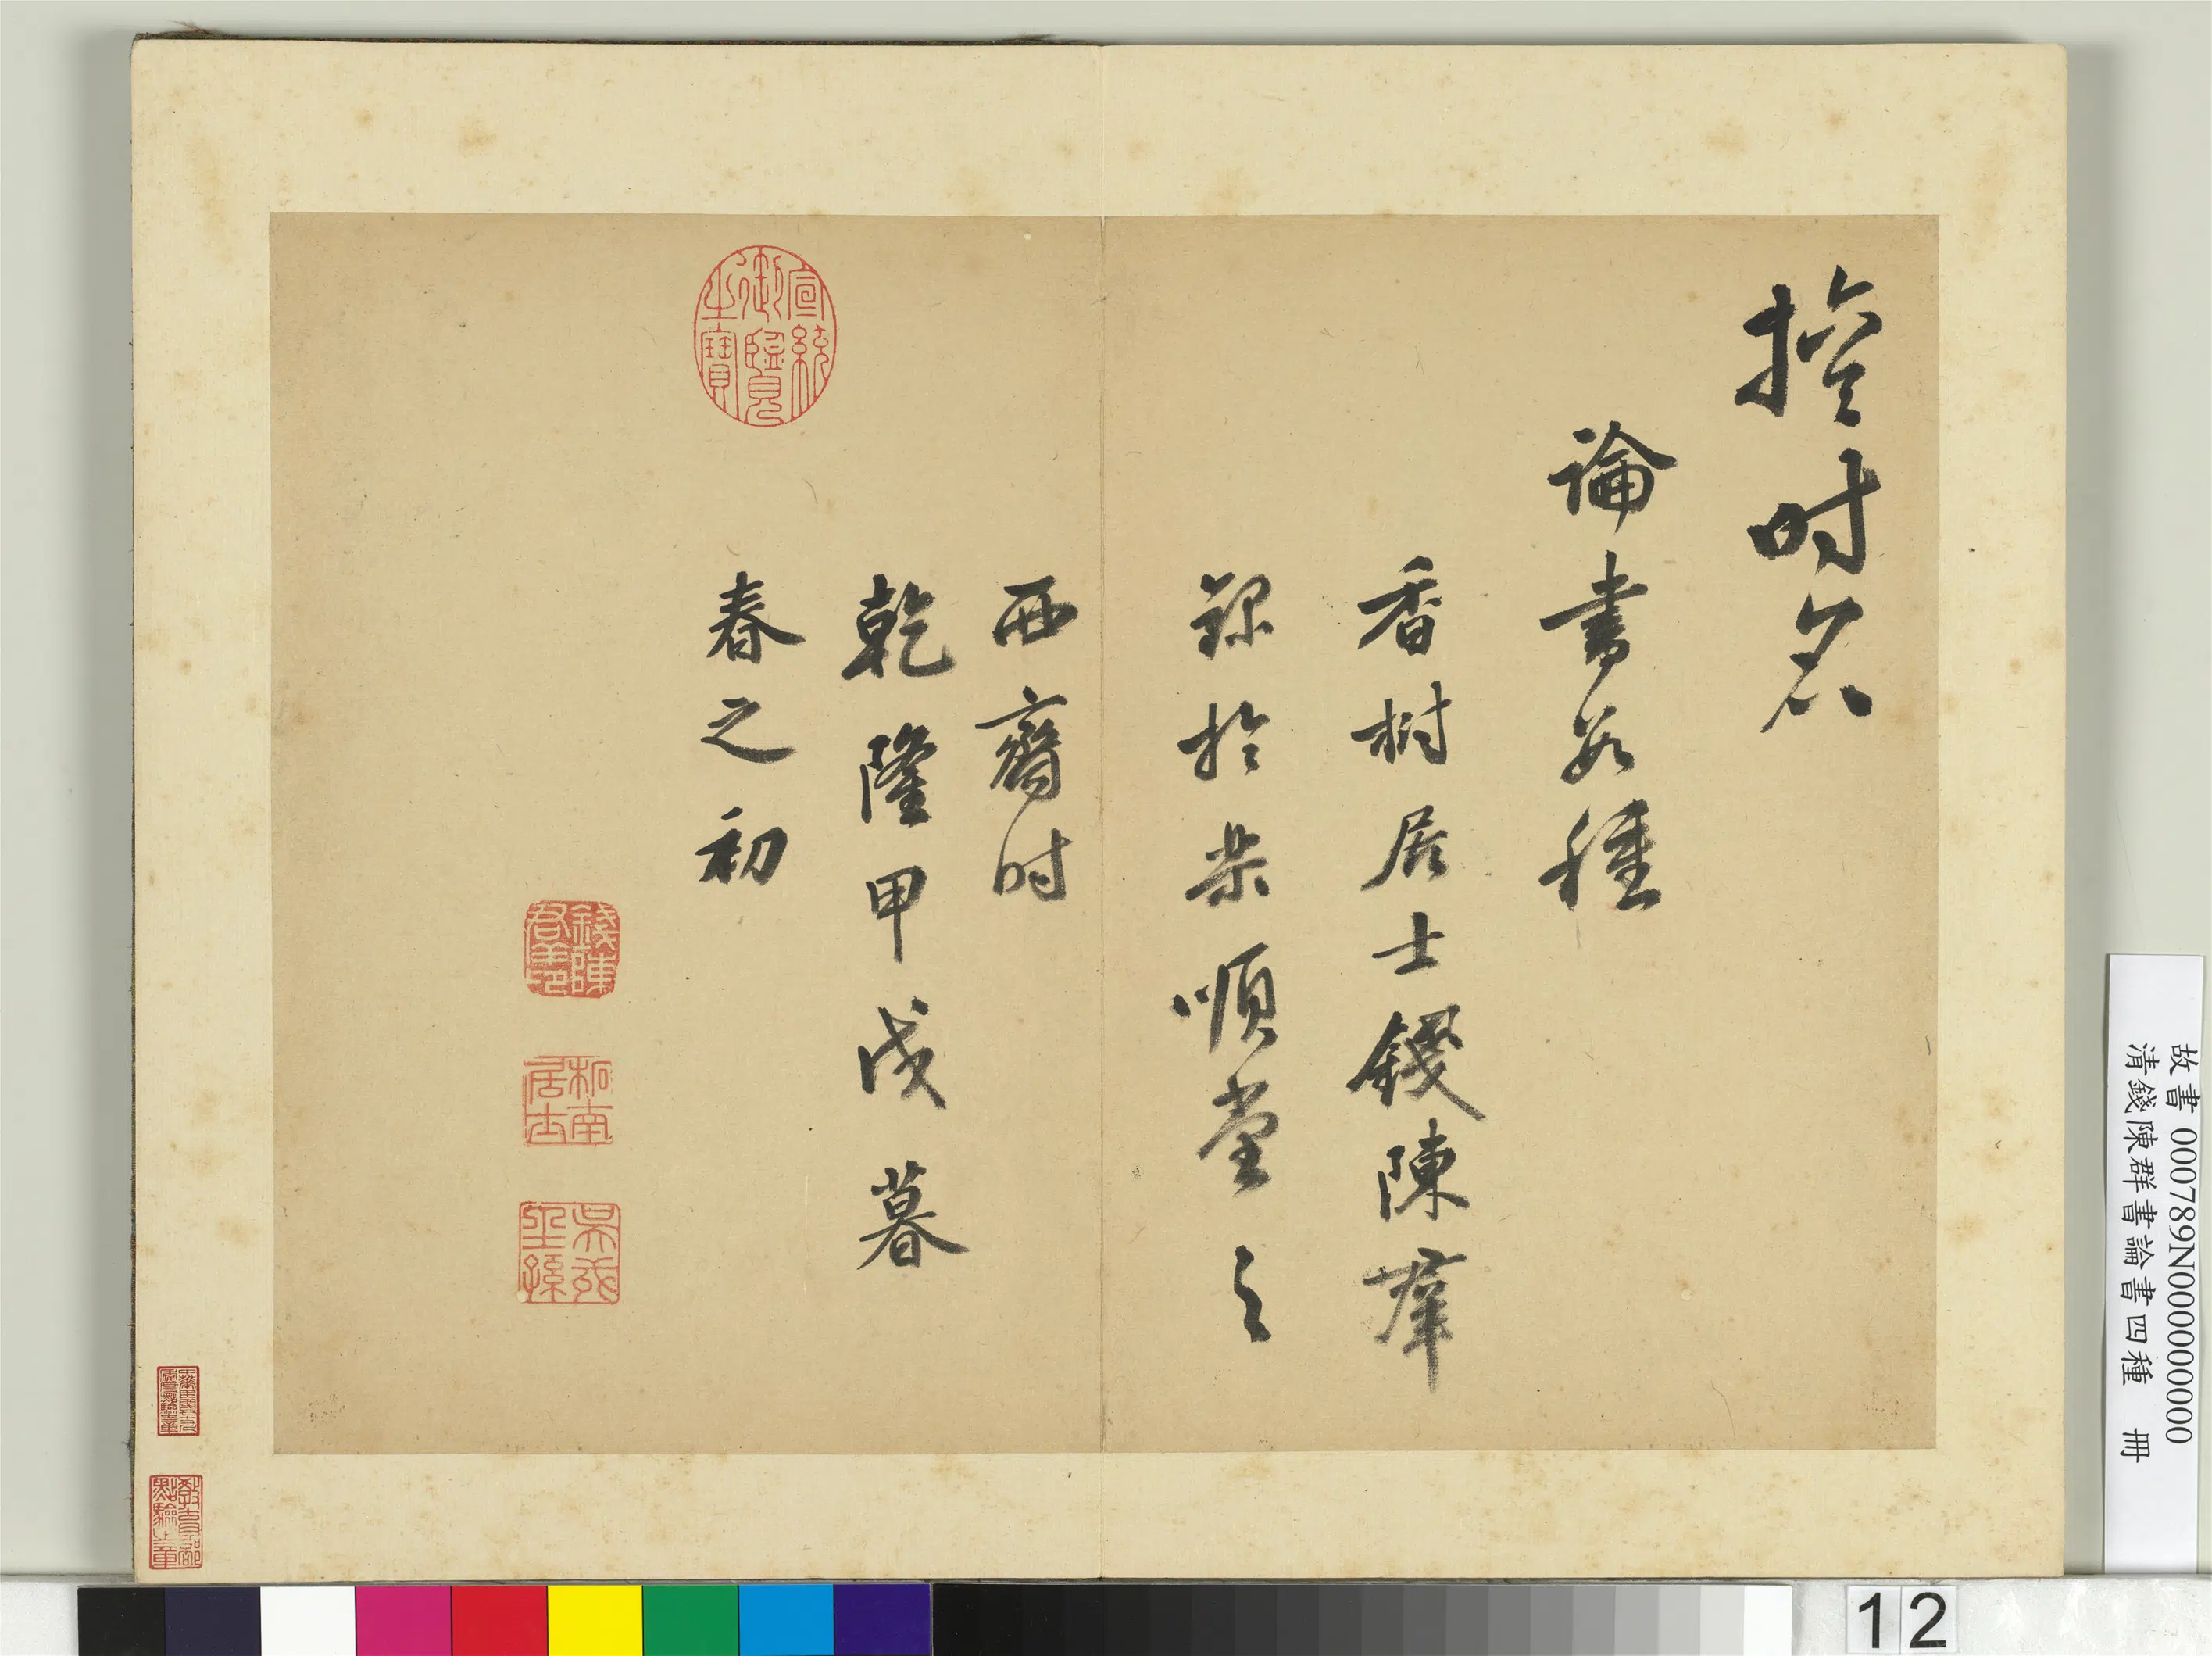 擅时名
論書四種
香樹居士錢陳群
録於樂順堂之
西齋时
乾隆甲戌暮
春之初
宣統御覽之寶
錢陳群印
柘南居士
吳越王孫
教育部點驗之章
故書 000789N000000000
清錢陳群書論書四種 冊
12